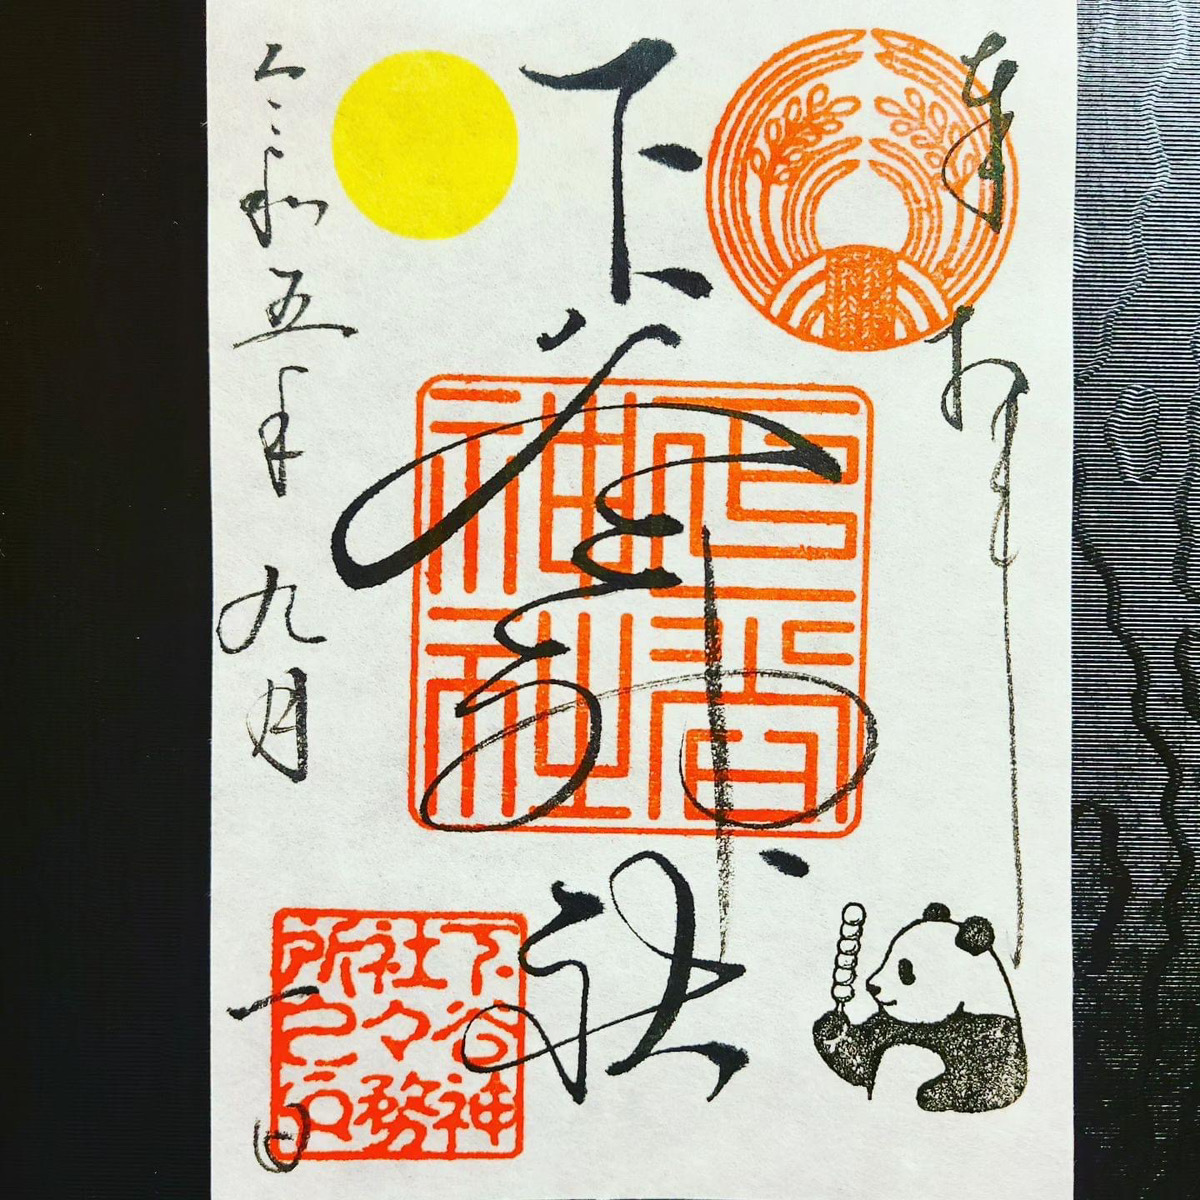 奉拝
下谷神社
下谷神
社々務
所之印
令和五年九月一日